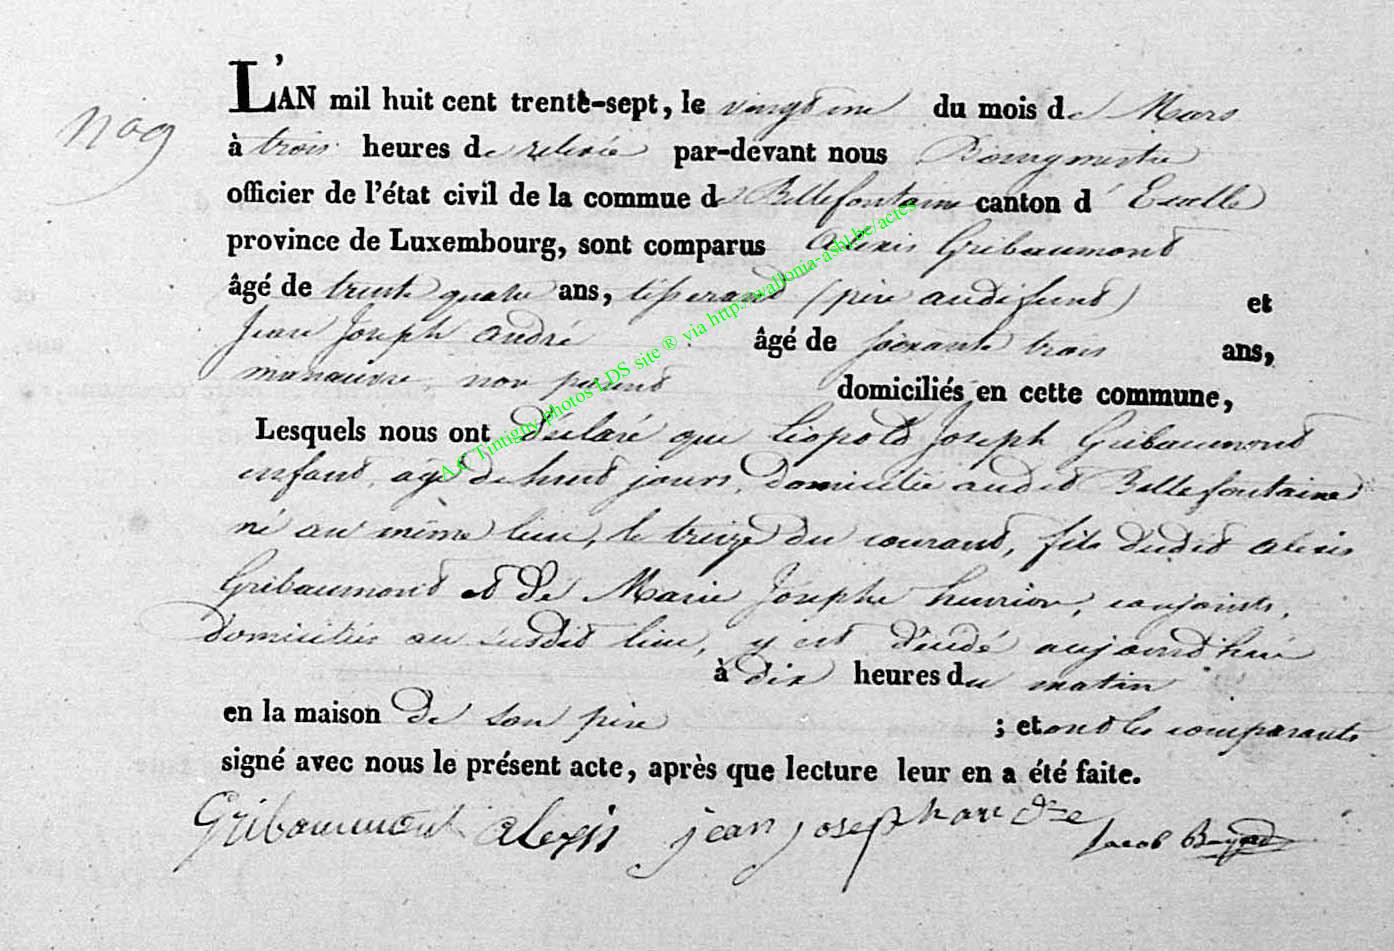 N° 9
L'AN mil huit cent trente-sept, le vingt une du mois de Mars
à trois heures de relevée par-devant nous Bourgmestre
officier de l'état civil de la commue de Bellefontaine canton d' Etalle
province de Luxembourg, sont comparus Alexis Gribaumont
âgé de trente quatre ans, tisserand (père audit défunt) et
Jean Joseph André âgé de soixante trois ans,
manœuvre, non parent domiciliés en cette commune,
Lesquels nous ont déclaré que Léopold Joseph Gribaumont
enfant, âgé de huit jours, domicilié audit Bellefontaine
né au même lieu, le treize du courant, fils dudit Alexis
Gribaumont et de Marie Josephe henrion, conjoints,
domiciliés au susdit lieu, y est décédé aujourd'hui
à dix heures du matin
en la maison de son père ; et ont les comparants
signé avec nous le présent acte, après que lecture leur en a été faite.
Gribaumont alexis jean joseph andre Jacob
A.C Tintigny photos LDS site ® via http://wallonia-asbl.be/actes